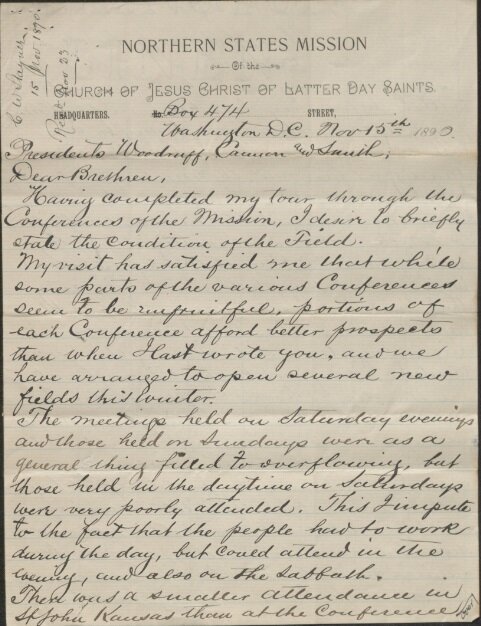 C. W. Stayner
15 Nov. 1890.
Recd Nov 23
NORTHERN STATES MISSION
Of the
CHURCH OF JESUS CHRIST OF LATTER DAY SAINTS.
HEADQUARTERS. No. Box 474 STREET,
Washington D.C. Nov 15th 1890.
Presidents Woodruff, Cannon and Smith;
Dear Brethren,
Having completed my tour through the
Conferences of the Mission, I desire to briefly
state the condition of the Field.
My visit has satisfied me that while
some parts of the various Conferences
seem to be unfruitful, portions of
each Conference afford better prospects
than when I last wrote you, and we
have arranged to open several new
fields this Winter.
The meetings held on Saturday evenings
and those held on Sundays were as a
general thing filled to overflowing, but
those held in the daytime on Saturdays
were very poorly attended. This I impute
to the fact that the people had to work
during the day, but could attend in the
evening, and also on the Sabbath.
There was a smaller attendance in
St John Kansas than at the Conference